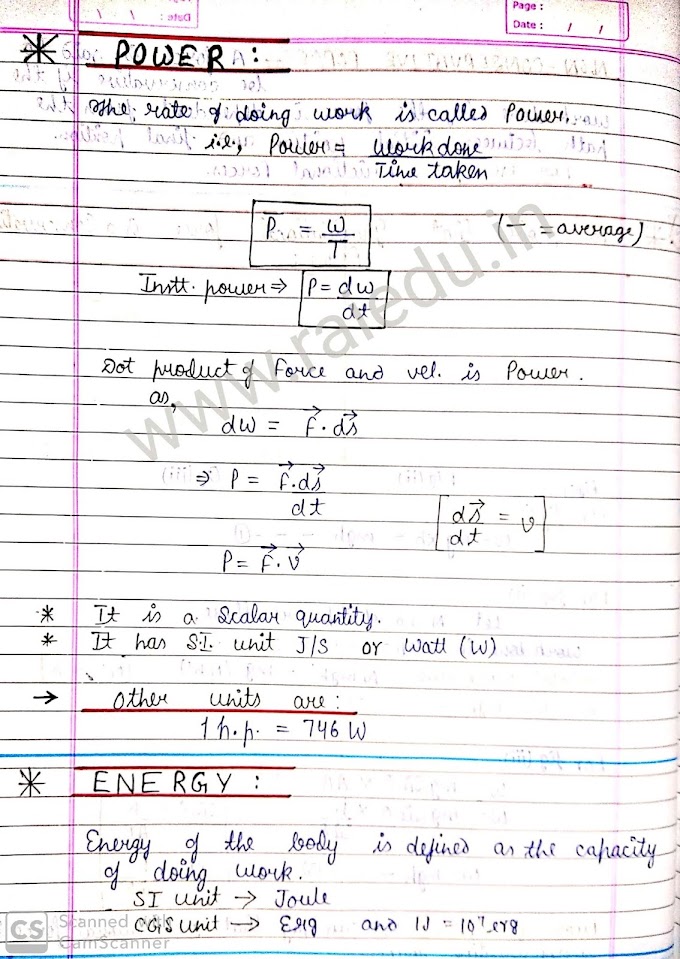 Page :
Date : / /
* POWER :
The rate of doing work is called Power.
i.e., Power = Work done
Time taken
P̅ = W
T
(— = average)
Instt. power ⇒ P = dw
dt
Dot product of Force and vel. is Power.
as,
dw = F⃗ . ds⃗
⇒ P = F⃗.ds⃗
dt
[ds⃗ = v]
dt
P = F⃗ . v⃗
* It is a Scalar quantity.
* It has S.I. unit J/S or Watt (W)
→ Other units are :
1 h.p. = 746 W
* ENERGY :
Energy of the body is defined as the capacity
of doing work.
SI unit → Joule
CGS unit → Erg and 1J = 10⁷ erg
www.rajedu.in
CS Scanned with
CamScanner